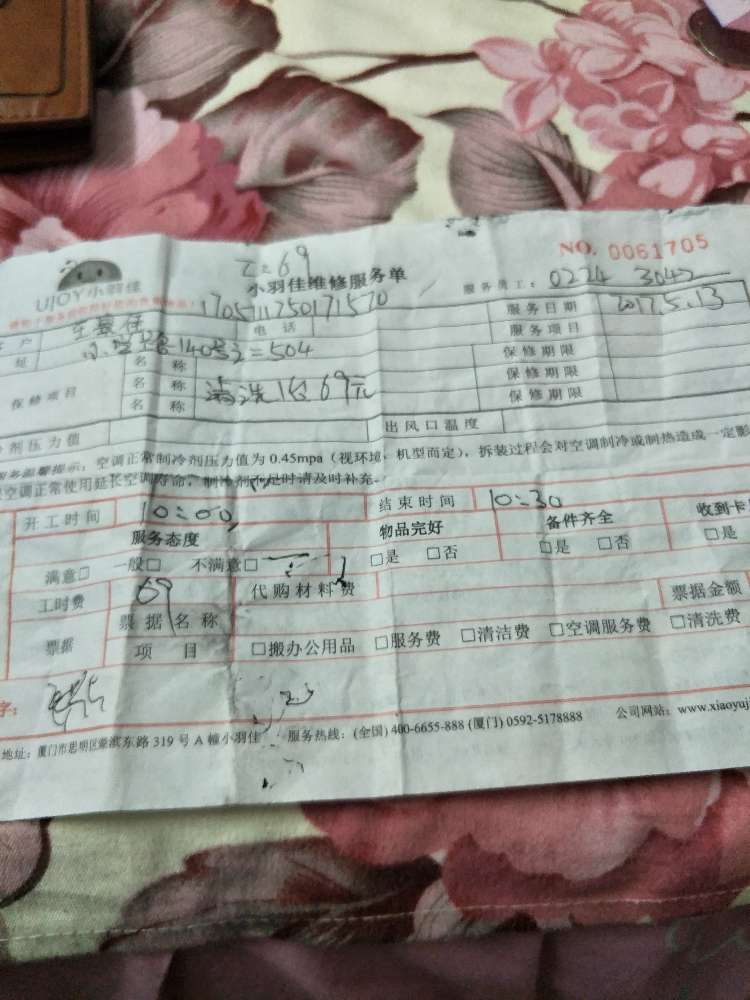 NO. 0061705
UJOY小羽佳
小羽佳维修服务单
服务员工: 0224 3042
1705111250171570
服务日期 2017.5.13
户 电话
服务项目
址 140号之=504
保修期限
名称
保修期限
保修项目 名称 清洗1台69元
保修期限
名称
剂压力值 出风口温度
空调正常制冷剂压力值为 0.45mpa (视环境、机型而定), 拆装过程会对空调制冷或制热造成一定影
空调正常使用延长空调寿命, 制冷剂不足时请及时补充.
开工时间 10:00 结束时间 10:30
服务态度 物品完好 备件齐全 收到卡
满意□ 一般□ 不满意□ □是 □否 □是 □否 □是
工时费 69 代购材料费 票据金额
票据 票据名称
项目 □搬办公用品 □服务费 □清洁费 □空调服务费 □清洗费
字:
地址: 厦门市思明区 滨东路 319 号 A 幢小羽佳 服务热线: (全国) 400-6655-888 (厦门) 0592-5178888 公司网站: www.xiaoyuj